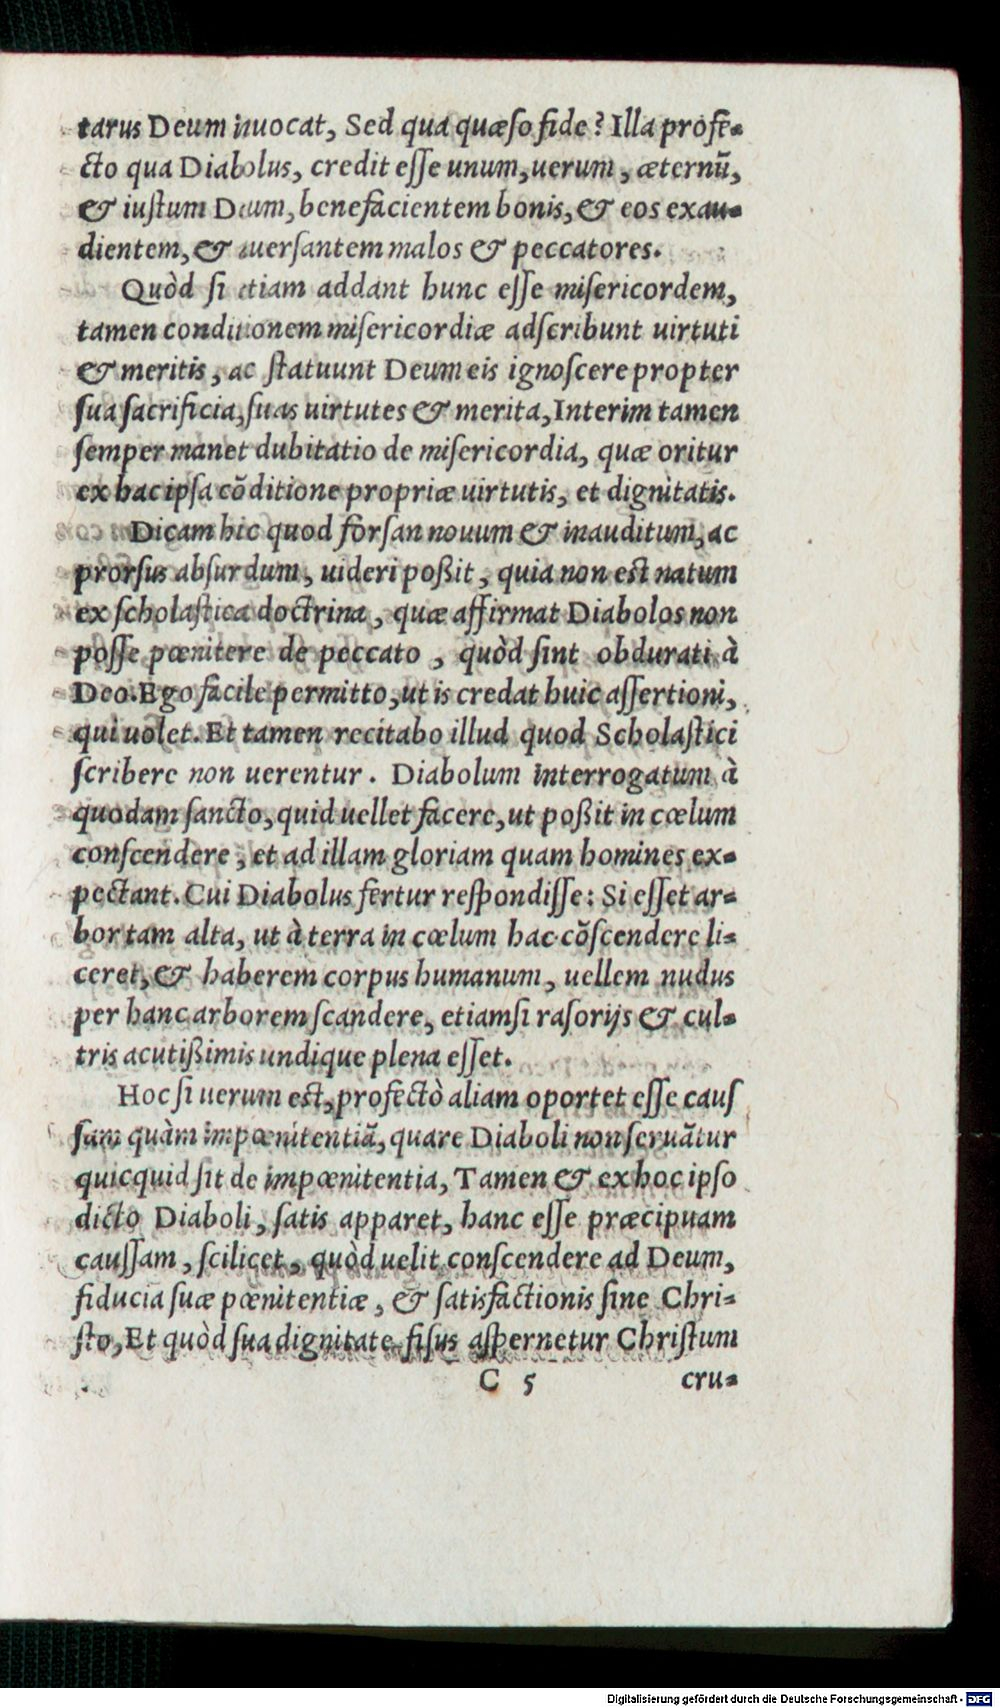 tarus Deum inuocat, Sed qua quæso fide? Illa profe-
cto qua Diabolus, credit esse unum, uerum, æternũ,
& iustum Deum, benefacientem bonis, & eos exau-
dientem, & auersantem malos & peccatores.
Quòd si etiam addant hunc esse misericordem,
tamen conditionem misericordiæ adscribunt uirtuti
& meritis, ac statuunt Deum eis ignoscere propter
sua sacrificia, suas uirtutes & merita, Interim tamen
semper manet dubitatio de misericordia, quæ oritur
ex hac ipsa cõditione propriæ uirtutis, et dignitatis.
Dicam hic quod forsan nouum & inauditum, ac
prorsus absurdum, uideri poßit, quia non est natum
ex scholastica doctrina, quæ affirmat Diabolos non
posse pœnitere de peccato, quòd sint obdurati à
Deo. Ego facile permitto, ut is credat huic assertioni,
qui uolet. Et tamen recitabo illud quod Scholastici
scribere non uerentur. Diabolum interrogatum à
quodam sancto, quid uellet facere, ut poßit in cœlum
conscendere, et ad illam gloriam quam homines ex-
pectant. Cui Diabolus fertur respondisse: Si esset ar-
bor tam alta, ut à terra in cœlum hac cõscendere li-
ceret, & haberem corpus humanum, uellem nudus
per hanc arborem scandere, etiamsi rasorijs & cul-
tris acutißimis undique plena esset.
Hoc si uerum est, profectò aliam oportet esse caus
sam quàm impœnitentiã, quare Diaboli non seruãtur
quicquid sit de impœnitentia, Tamen & ex hoc ipso
dicto Diaboli, satis apparet, hanc esse præcipuam
caussam, scilicet, quòd uelit conscendere ad Deum,
fiducia suæ pœnitentiæ, & satisfactionis sine Chri-
sto, Et quòd sua dignitate fisus aspernetur Christum
C 5 cru-
Digitalisierung gefördert durch die Deutsche Forschungsgemeinschaft - DFG